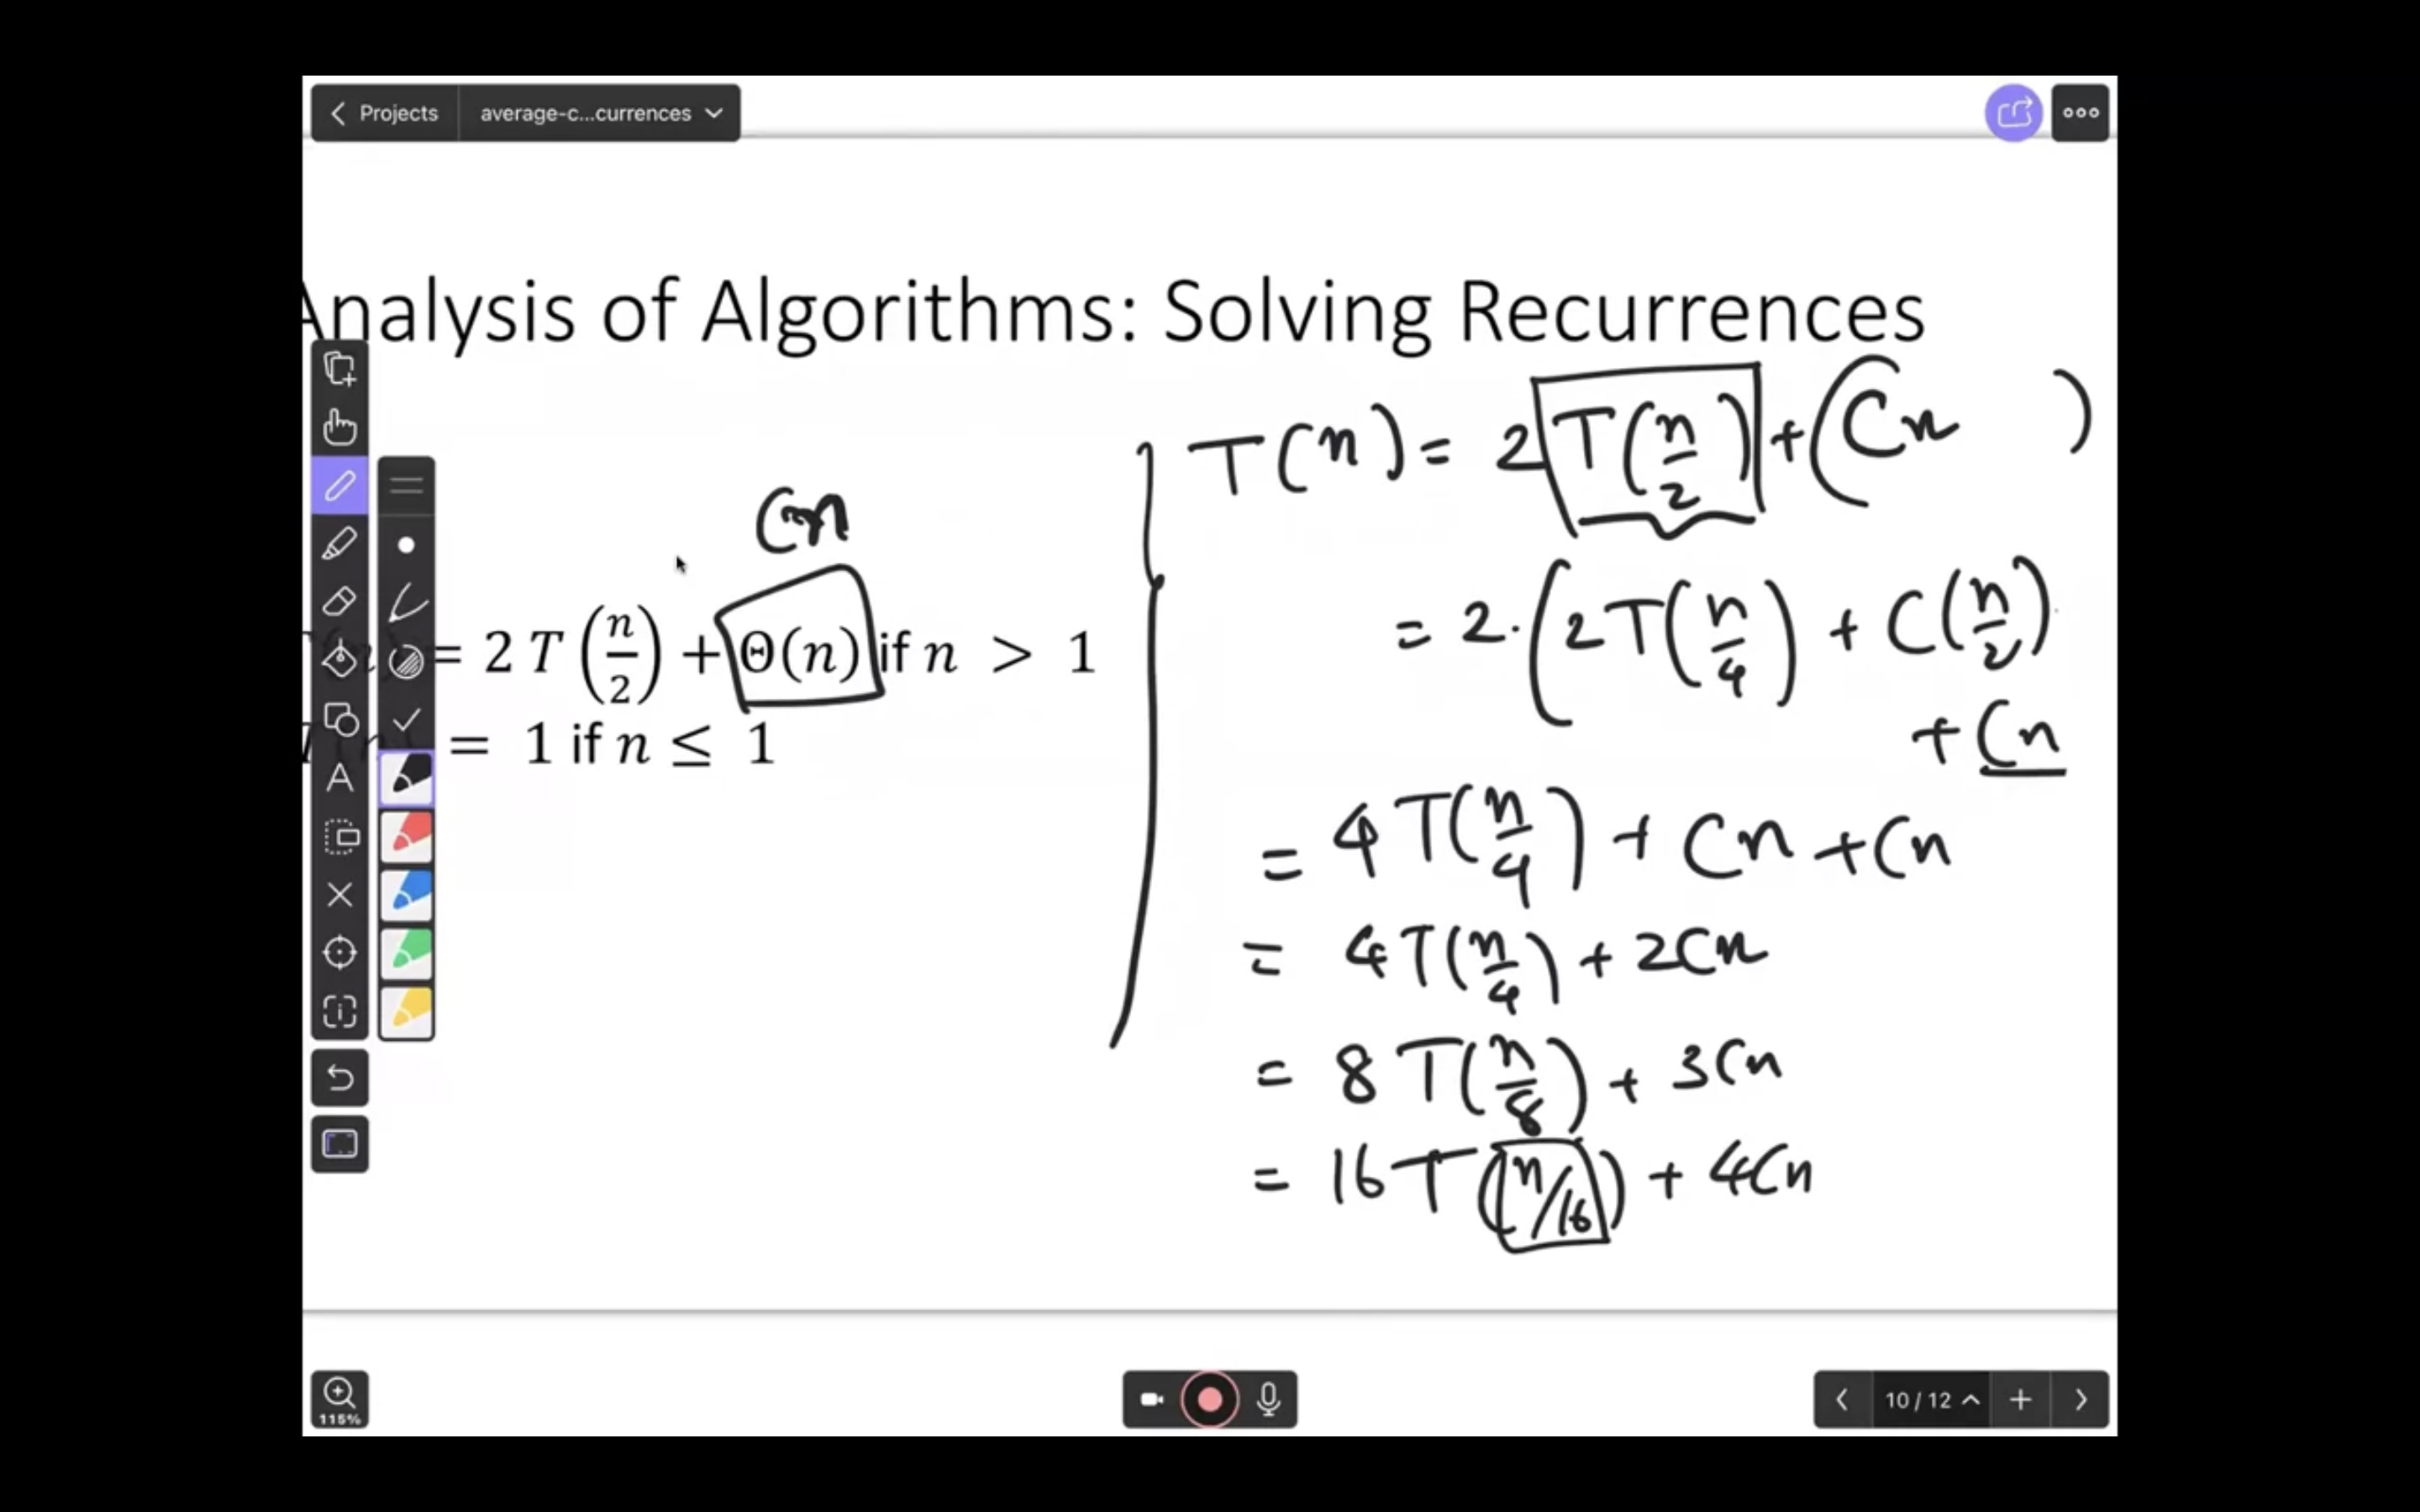 Projects average-c...currences
Analysis of Algorithms: Solving Recurrences
Cn
= 2 T (n/2) + Θ(n) if n > 1
T(n) = 1 if n ≤ 1
T(n) = 2 T(n/2) + (Cn )
= 2·(2T(n/4) + C(n/2)
+ Cn
= 4T(n/4) + Cn + Cn
= 4T(n/4) + 2Cn
= 8T(n/8) + 3Cn
= 16T(n/16) + 4Cn
A
115%
10 / 12